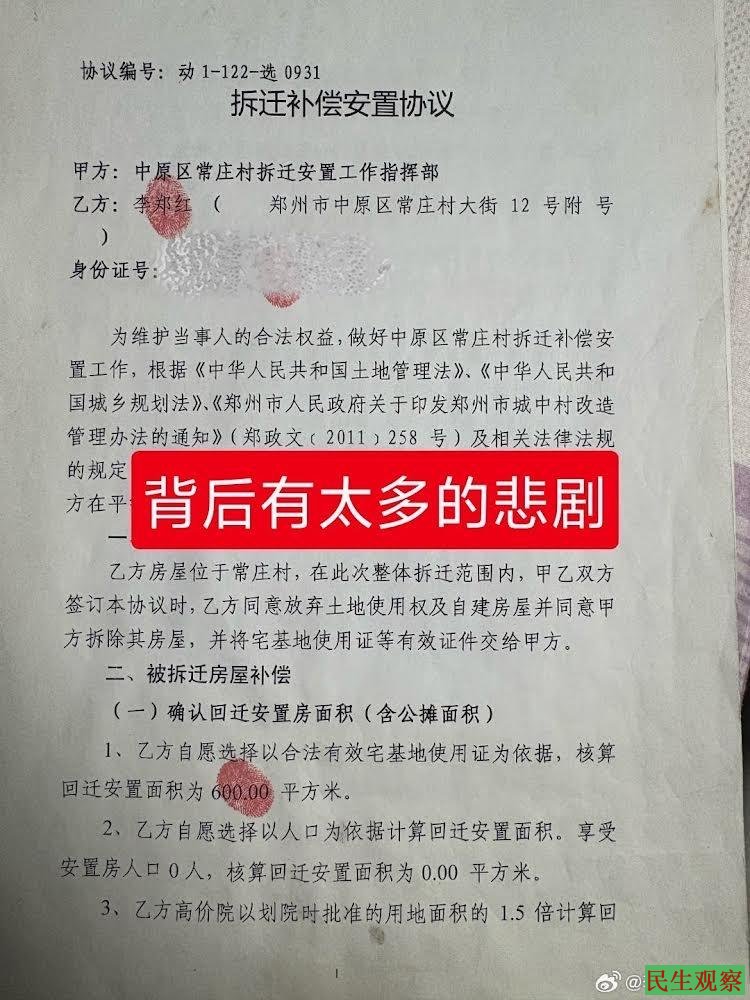 协议编号：动 1-122-选 0931
拆迁补偿安置协议
甲方：中原区常庄村拆迁安置工作指挥部
乙方：李郑红（ 郑州市中原区常庄村大街 12 号附 号
）
身份证号：
为维护当事人的合法权益，做好中原区常庄村拆迁补偿安
置工作，根据《中华人民共和国土地管理法》、《中华人民共和
国城乡规划法》、《郑州市人民政府关于印发郑州市城中村改造
管理办法的通知》（郑政文﹝2011﹞258 号）及相关法律法规
的规定
方在平
背后有太多的悲剧
一
乙方房屋位于常庄村，在此次整体拆迁范围内，甲乙双方
签订本协议时，乙方同意放弃土地使用权及自建房屋并同意甲
方拆除其房屋，并将宅基地使用证等有效证件交给甲方。
二、被拆迁房屋补偿
（一）确认回迁安置房面积（含公摊面积）
1、乙方自愿选择以合法有效宅基地使用证为依据，核算
回迁安置面积为 600.00 平方米。
2、乙方自愿选择以人口为依据计算回迁安置面积。享受
安置房人口 0 人，核算回迁安置面积为 0.00 平方米。
3、乙方高价院以划院时批准的用地面积的 1.5 倍计算回
1
@
民生观察